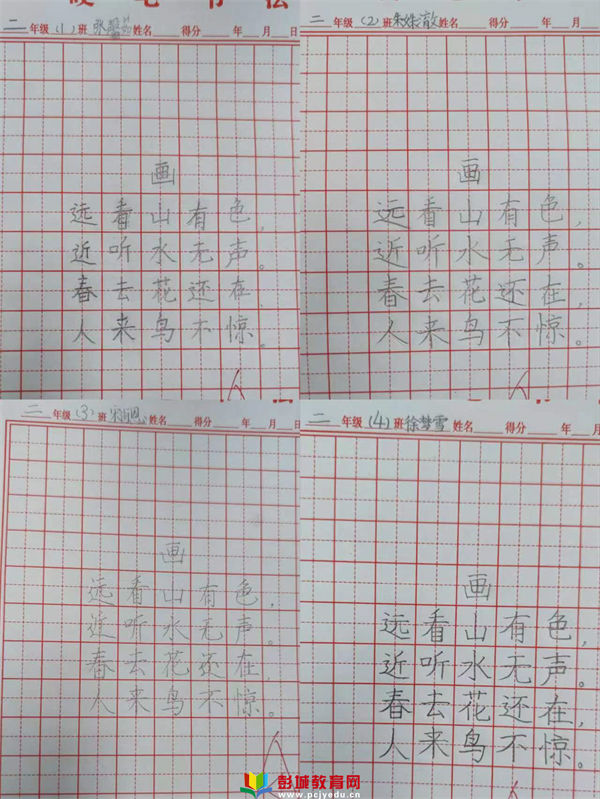 硬笔书法
二年级(1)班 张馨 姓名 得分 年 月 日
画
远看山有色,
近听水无声。
春去花还在,
人来鸟不惊。
二年级(2)班 姓名 得分 年 月
画
远看山有色,
近听水无声。
春去花还在,
人来鸟不惊。
二年级(3)班 姓名 得分 年 月 日
画
远看山有色,
近听水无声。
春去花还在,
人来鸟不惊。
二年级(4)班 徐梦雪 姓名 得分 年 月
画
远看山有色,
近听水无声。
春去花还在,
人来鸟不惊。
彭城教育网
www.pcjyedu.cn